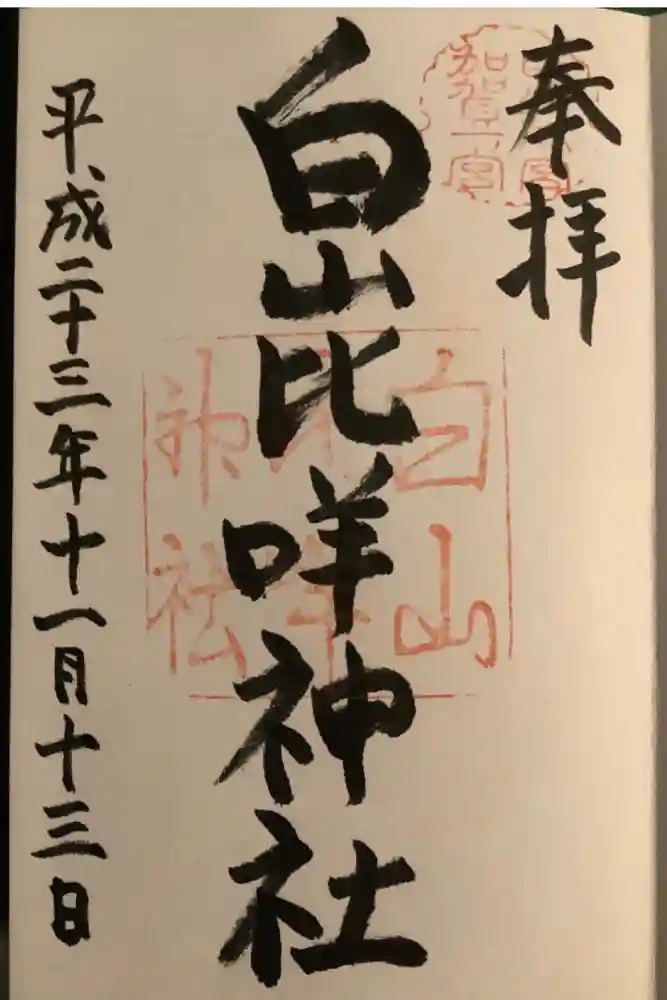 奉拝
白山比咩神社
平成二十三年十一月十三日
白山
比咩
神社
加賀一宮